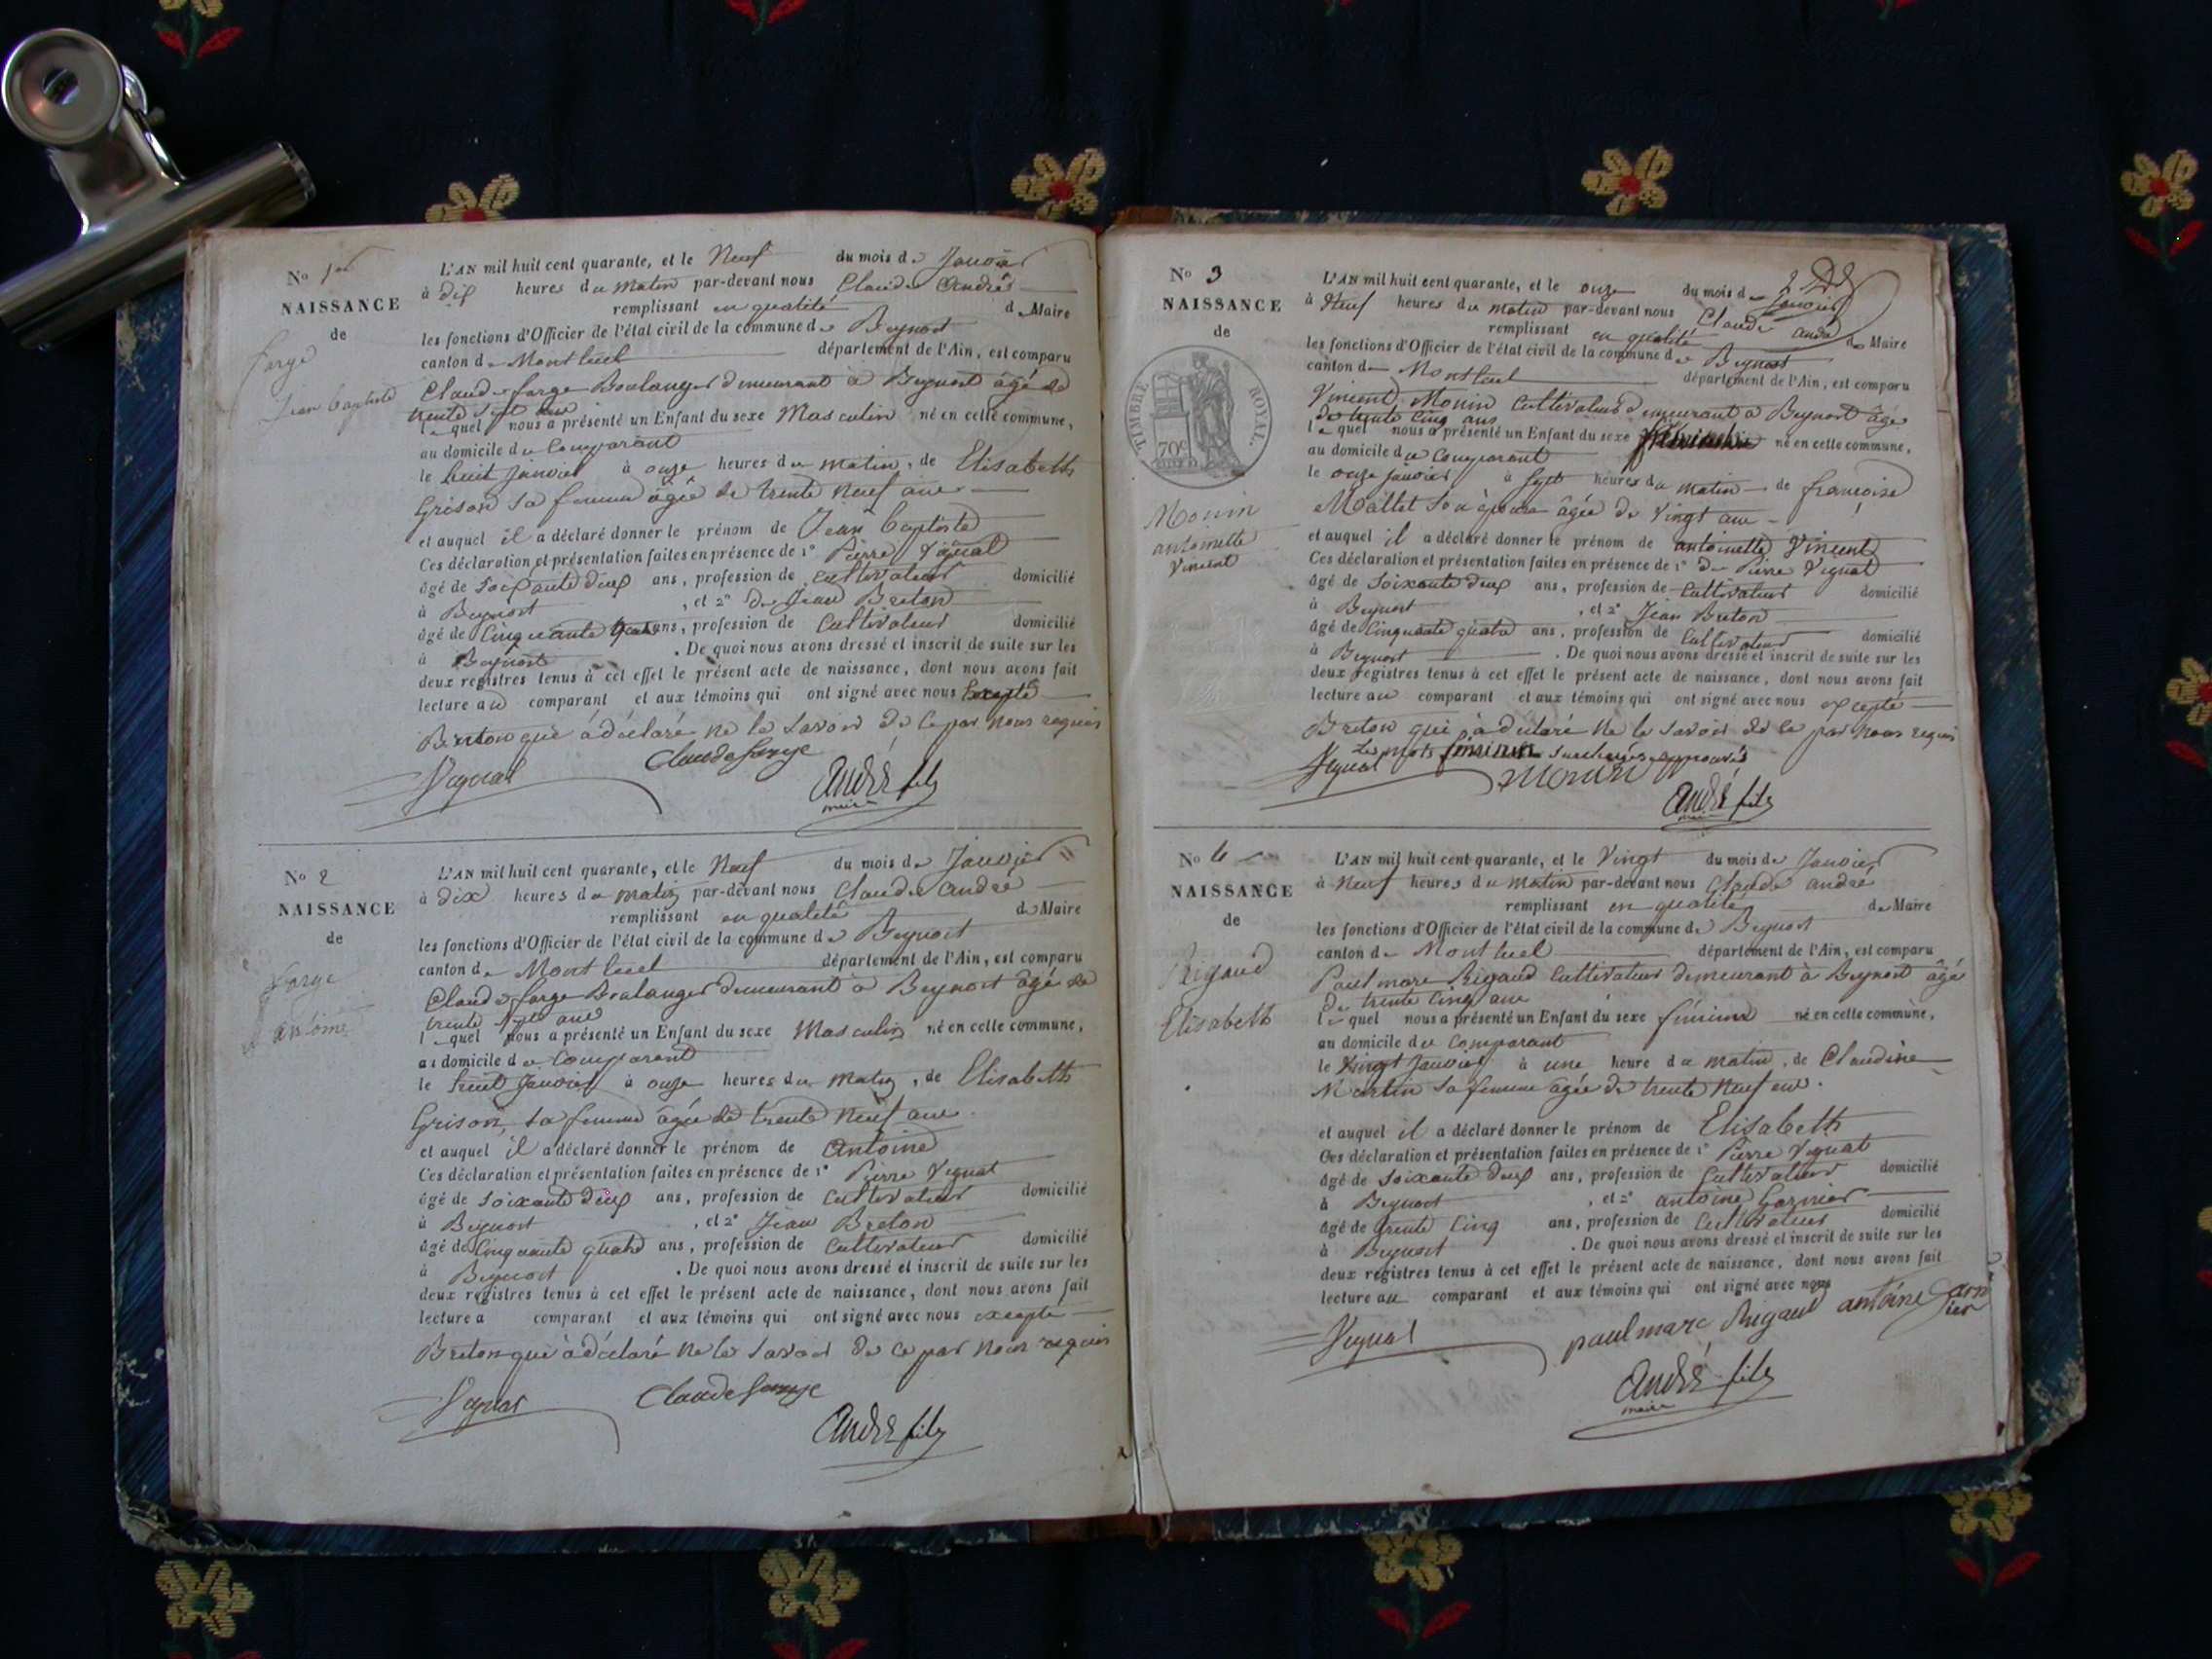 No 1er
NAISSANCE
de
farge
Jean baptiste
L'AN mil huit cent quarante, et le Neuf du mois de Janvier
à dix heures du matin par-devant nous Claude André
remplissant en qualité de Maire
les fonctions d'Officier de l'état civil de la commune de Beynost
canton de Montluel département de l'Ain, est comparu
Claude farge Boulanger demeurant à Beynost âgé de
trente sept ans
lequel nous a présenté un Enfant du sexe Masculin né en cette commune,
au domicile du Comparant
le huit Janvier à onze heures du matin, de Elisabeth
Grison sa femme âgée de trente neuf ans
et auquel il a déclaré donner le prénom de Jean baptiste
Ces déclaration et présentation faites en présence de 1° Pierre Vignat
âgé de Soixante deux ans, profession de cultivateur domicilié
à Beynost, et 2° de Jean Breton
âgé de Cinquante quatre ans, profession de Cultivateur domicilié
à Beynost. De quoi nous avons dressé et inscrit de suite sur les
deux registres tenus à cet effet le présent acte de naissance, dont nous avons fait
lecture au comparant et aux témoins qui ont signé avec nous Excepté
Breton qui à déclaré ne le savoir de ce par nous requis
Vignat Claude farge
André fils
maire
No 2
NAISSANCE
de
farge
antoine
L'AN mil huit cent quarante, et le Neuf du mois de Janvier
à dix heures du matin par-devant nous Claude André
remplissant en qualité de Maire
les fonctions d'Officier de l'état civil de la commune de Beynost
canton de Montluel département de l'Ain, est comparu
Claude farge Boulanger demeurant à Beynost âgé de
trente sept ans
lequel nous a présenté un Enfant du sexe Masculin né en cette commune,
au domicile du Comparant
le huit Janvier à onze heures du matin, de Elisabeth
Grison, sa femme âgée de trente neuf ans.
et auquel il a déclaré donner le prénom de Antoine
Ces déclaration et présentation faites en présence de 1° Pierre Vignat
âgé de soixante deux ans, profession de cultivateur domicilié
à Beynost, et 2° Jean Breton
âgé de Cinquante quatre ans, profession de Cultivateur domicilié
à Beynost. De quoi nous avons dressé et inscrit de suite sur les
deux registres tenus à cet effet le présent acte de naissance, dont nous avons fait
lecture a comparant et aux témoins qui ont signé avec nous excepté
Breton qui à déclaré ne le savoir de ce par nous requis
Vignat Claude farge
André fils
No 3
NAISSANCE
de
TIMBRE ROYAL.
70c
Monin
antoinette
Vincent
L'AN mil huit cent quarante, et le onze du mois de Janvier
à Neuf heures du matin par-devant nous Claude André
remplissant en qualité de Maire
les fonctions d'Officier de l'état civil de la commune de Beynost
canton de Montluel département de l'Ain, est comparu
Vincent Monin Cultivateur demeurant à Beynost âgé
de trente Cinq ans
lequel nous a présenté un Enfant du sexe né en cette commune,
au domicile du comparant
le onze janvier à sept heures du matin de françoise
Mallet son épouse âgée de vingt ans
et auquel il a déclaré donner le prénom de antoinette Vincent
Ces déclaration et présentation faites en présence de 1° de Pierre Vignat
âgé de Soixante deux ans, profession de Cultivateur domicilié
à Beynost, et 2° Jean Breton
âgé de Cinquante quatre ans, profession de Cultivateur domicilié
à Beynost. De quoi nous avons dressé et inscrit de suite sur les
deux registres tenus à cet effet le présent acte de naissance, dont nous avons fait
lecture au comparant et aux témoins qui ont signé avec nous excepté
Breton qui à déclaré ne le savoir de ce par nous requis
Le mot féminin surchargé approuvé
Vignat Monin
André fils
maire
No 4
NAISSANCE
de
Rigaud
Elisabeth
L'AN mil huit cent quarante, et le Vingt du mois de Janvier
à Neuf heures du matin par-devant nous Claude André
remplissant en qualité de Maire
les fonctions d'Officier de l'état civil de la commune de Beynost
canton de Montluel département de l'Ain, est comparu
Paul marc Rigaud Cultivateur demeurant à Beynost âgé
de trente Cinq ans
lequel nous a présenté un Enfant du sexe féminin né en cette commune,
au domicile du Comparant
le Vingt Janvier à une heure du matin, de Claudine
Martin sa femme âgée de trente neuf ans.
et auquel il a déclaré donner le prénom de Elisabeth
Ces déclaration et présentation faites en présence de 1° Pierre Vignat
âgé de Soixante deux ans, profession de Cultivateur domicilié
à Beynost, et 2° antoine Garnier
âgé de trente Cinq ans, profession de Cultivateur domicilié
à Beynost. De quoi nous avons dressé et inscrit de suite sur les
deux registres tenus à cet effet le présent acte de naissance, dont nous avons fait
lecture au comparant et aux témoins qui ont signé avec nous
Vignat paul marc Rigaud antoine Garnier
André fils
maire